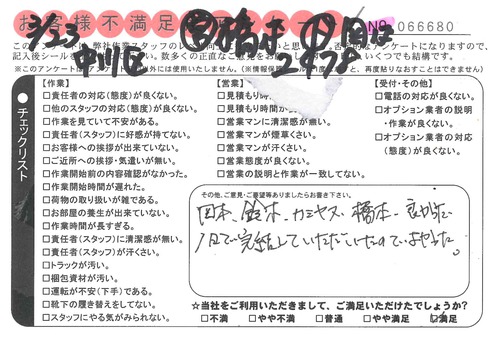 お客様不満足
No 066680
3/23
中川区
橋本
このアンケートは、弊社作業スタッフのレベル
チェックリスト
【作業】
□責任者の対応(態度)が良くない。
□他のスタッフの対応(態度)が良くない。
□作業を見ていて不安がある。
□責任者(スタッフ)に好感が持てない。
□お客様への挨拶が出来ていない。
□ご近所への挨拶・気遣いが無い。
□作業開始前の内容確認がなかった。
□作業開始時間が遅れた。
□荷物の取り扱いが雑である。
□お部屋の養生が出来ていない。
□作業時間が長すぎる。
□責任者(スタッフ)に清潔感が無い。
□責任者(スタッフ)が汗くさい。
□トラックが汚い。
□梱包資材が汚い。
□運転が不安(下手)である。
□靴下の履き替えをしてない。
□スタッフにやる気がみられない。
【営業】
□見積も
□見積もり時間か
□営業マンに清潔感が無い。
□営業マンが煙草くさい。
□営業マンが汗くさい。
□営業態度が良くない。
□営業の説明と作業が一致してない。
【受付・その他】
□電話の対応が良くない。
□オプション業者の説明
・作業が良くない。
□オプション業者の対応
(態度)が良くない。
その他、ご意見・ご要望等ありましたらお書き下さい。
田本、鈴木、カミヤス、橋本、良かった
1日で完結していただいたので、よかった。
☆当社をご利用いただきまして、ご満足いただけたでしょうか?
□不満 □やや不満 □普通 □やや満足 □満足